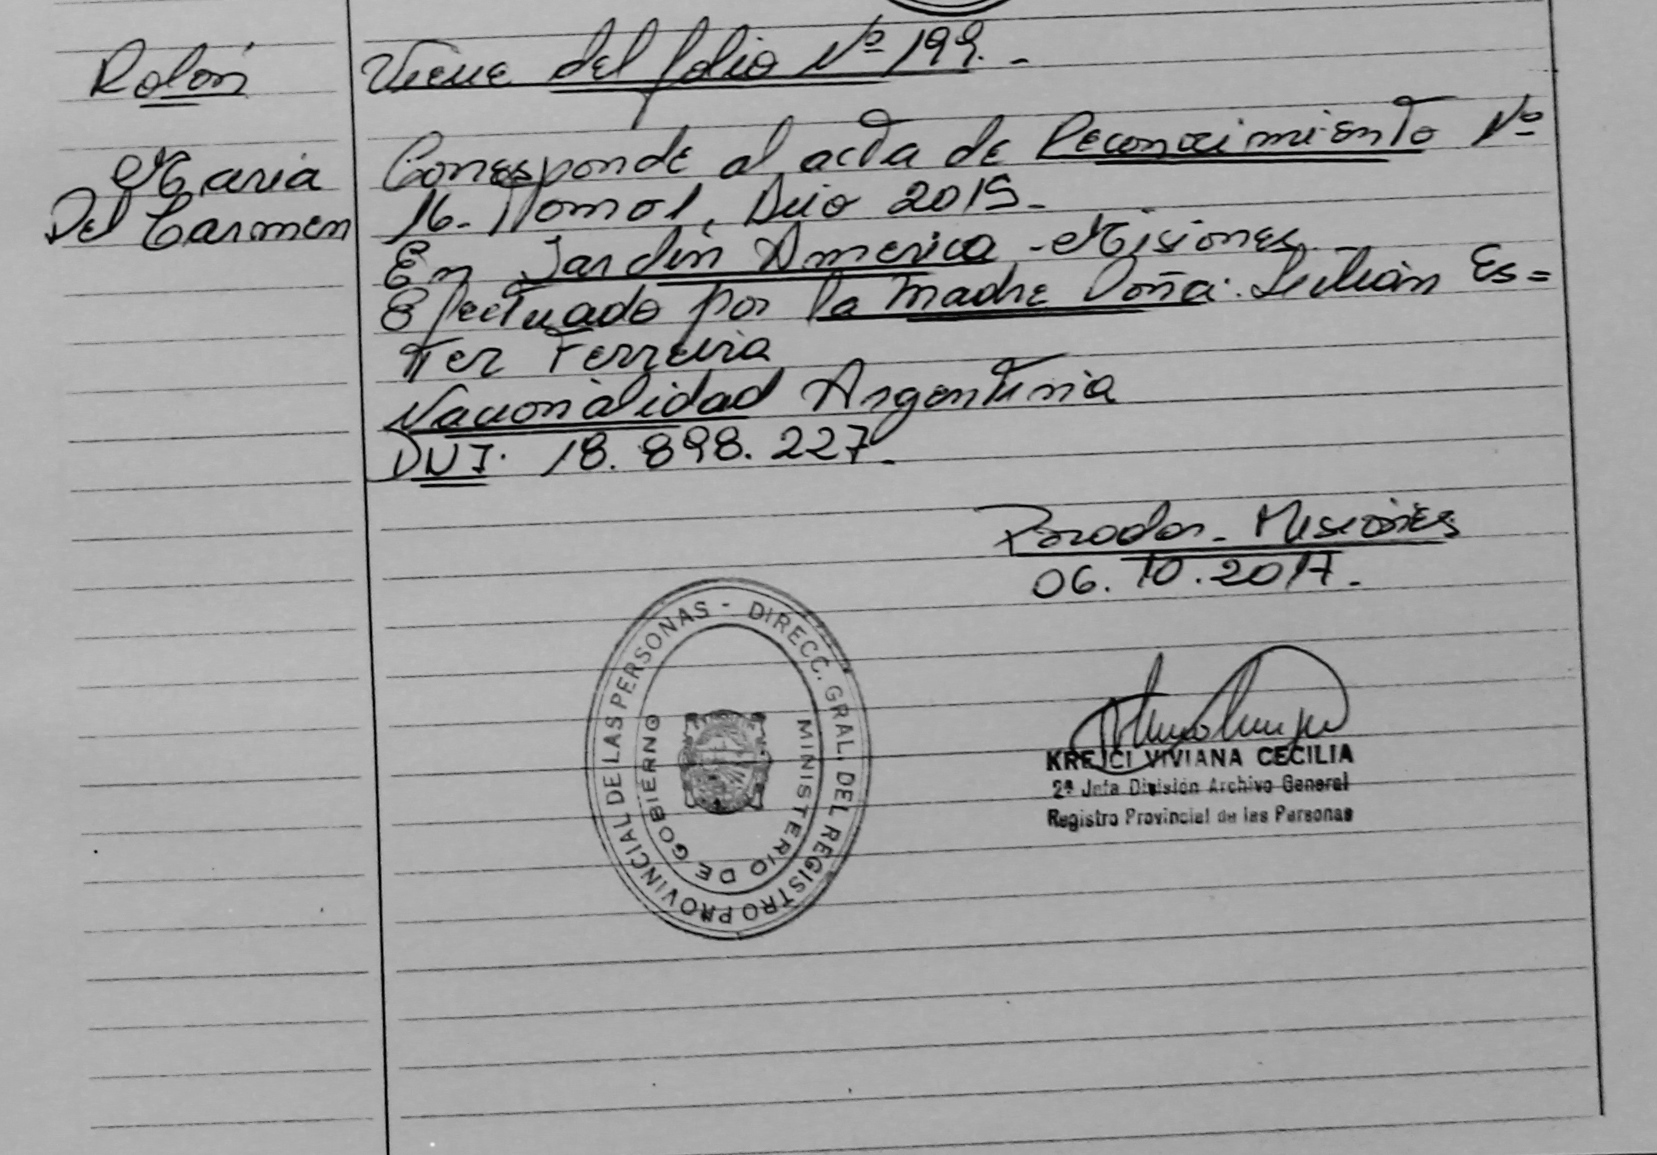 Rolón
Maria
Del Carmen
Viene del folio Nº 199.-
Corresponde al acta de Reconocimiento Nº
16. Tomo 1, Año 2015.-
En Jardín America - Misiones
Efectuado por la madre Doña: Lilián Es=
ter Ferreira
Nacionalidad Argentina
DNI. 18.898.227.
Posadas - Misiones
06.10.2017.
DIRECC. GRAL. DEL REGISTRO PROVINCIAL DE LAS PERSONAS -
MINISTERIO DE GOBIERNO
KREJCI VIVIANA CECILIA
2ª Jefa División Archivo General
Registro Provincial de las Personas